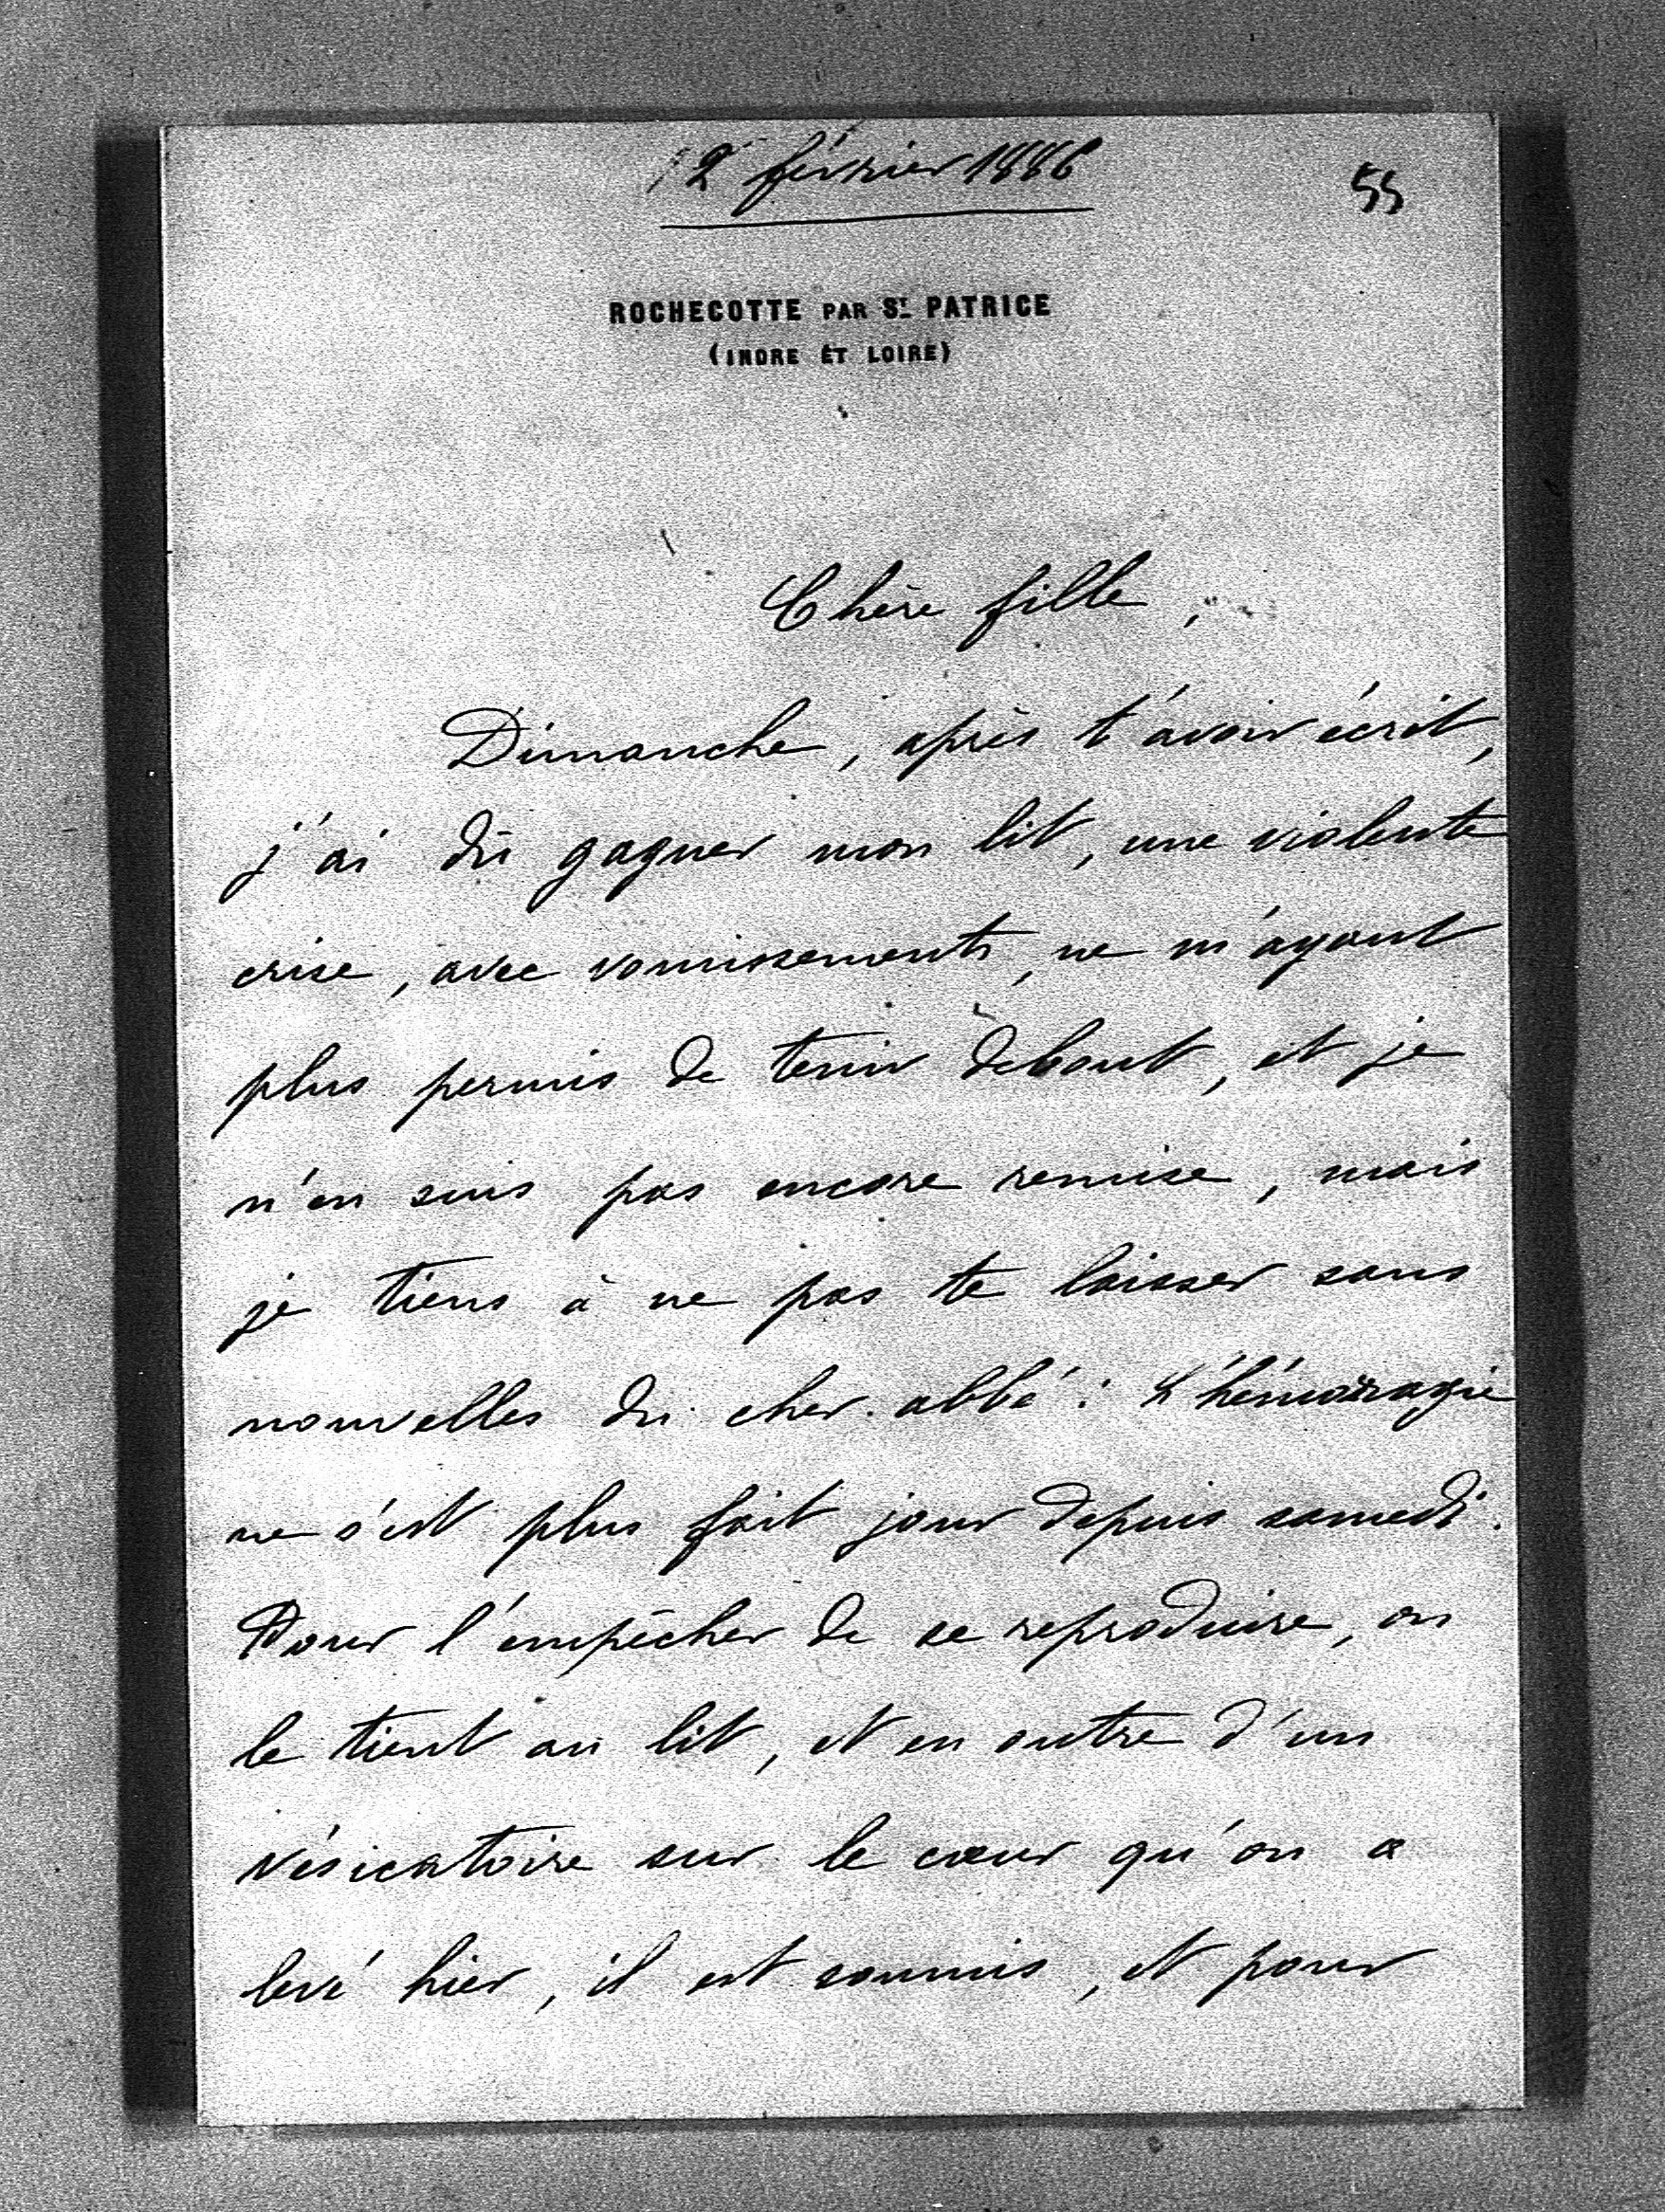 2 février 1886
55
ROCHECOTTE PAR ST PATRICE
(INDRE ET LOIRE)
Chère fille,
Dimanche, après t'avoir écrit,
j'ai dû gagner mon lit, une violente
crise, avec vomissements, ne m'ayant
plus permis de tenir debout, et je
n'en suis pas encore remise, mais
je tiens à ne pas te laisser sans
nouvelles du cher abbé : L'hémorragie
ne s'est plus fait jour depuis samedi.
Pour l'empêcher de se reproduire, on
le tient au lit, et en outre d'un
vésicatoire sur le cœur qu'on a
levé hier, il est soumis, et pour